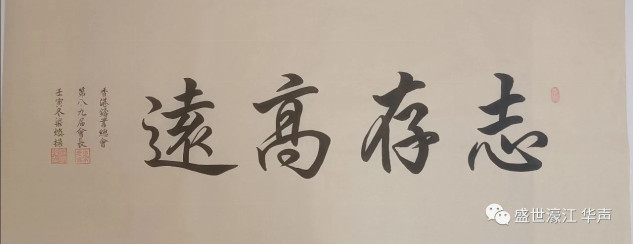 志存高遠
香港鑄業總會
第八九屆會長
壬寅冬
盛世濠江 华声